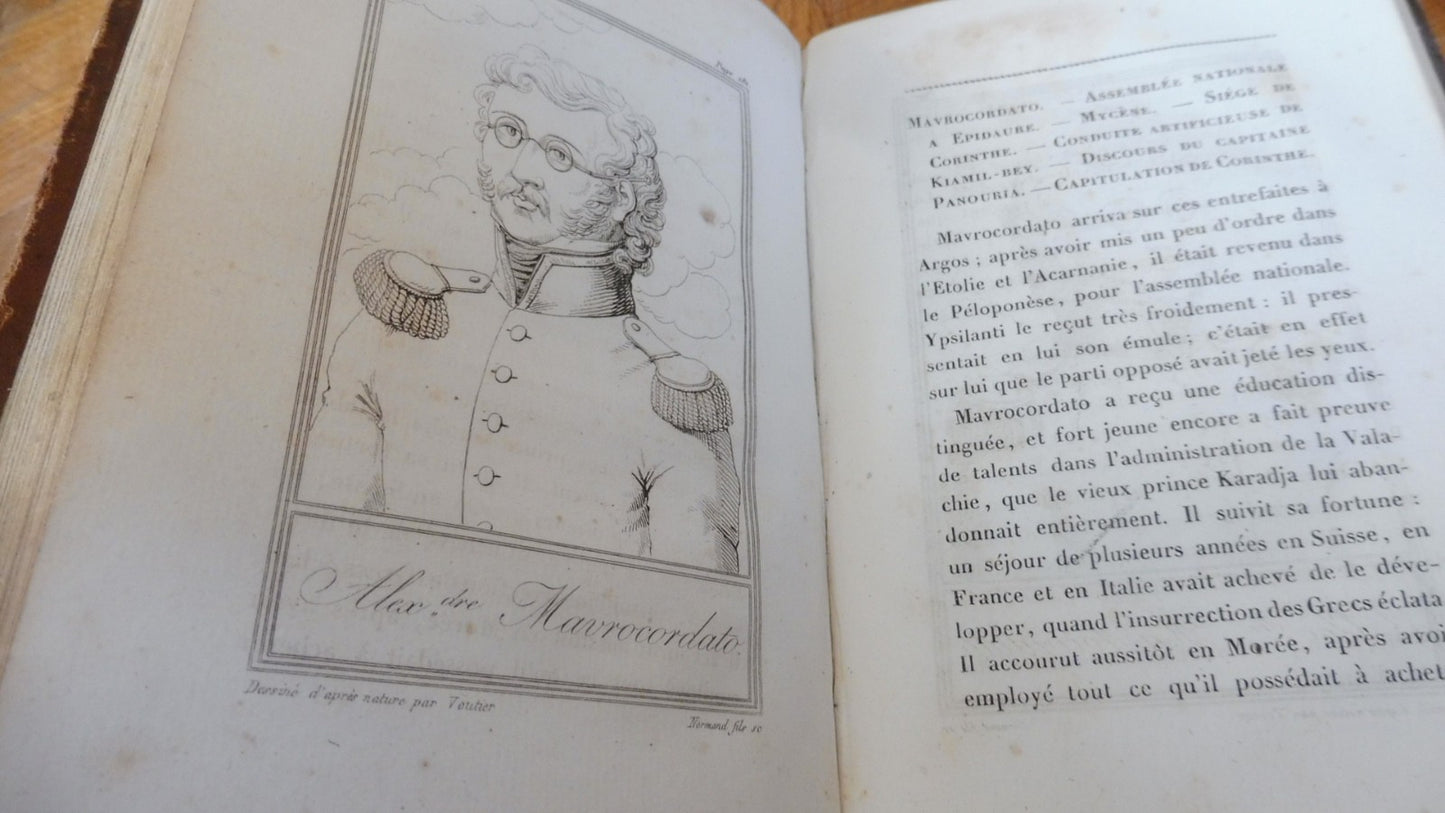 Page
Alex.dre Mavrocordato.
Dessiné d'après nature par Voutier
Normand fils sc
MAVROCORDATO. — ASSEMBLÉE NATIONALE
A EPIDAURE. — MYCÈNE. — SIÉGE DE
CORINTHE. — CONDUITE ARTIFICIEUSE DE
KIAMIL-BEY. — DISCOURS DU CAPITAINE
PANOURIA. — CAPITULATION DE CORINTHE.
Mavrocordato arriva sur ces entrefaites à
Argos ; après avoir mis un peu d'ordre dans
l'Etolie et l'Acarnanie, il était revenu dans
le Péloponèse, pour l'assemblée nationale.
Ypsilanti le reçut très froidement : il pres-
sentait en lui son émule ; c'était en effet
sur lui que le parti opposé avait jeté les yeux.
Mavrocordato a reçu une éducation dis-
tinguée, et fort jeune encore a fait preuve
de talents dans l'administration de la Vala-
chie, que le vieux prince Karadja lui aban-
donnait entièrement. Il suivit sa fortune :
un séjour de plusieurs années en Suisse, en
France et en Italie avait achevé de le déve-
lopper, quand l'insurrection des Grecs éclata
Il accourut aussitôt en Morée, après avoi
employé tout ce qu'il possédait à achet